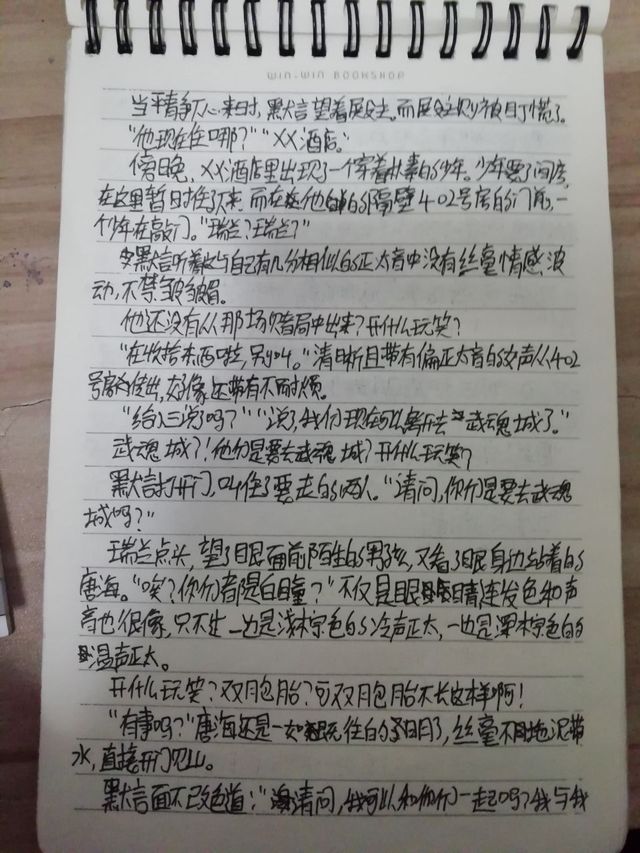 WIN-WIN BOOKSHOP
当平静下心来时，默言望着展空，而展空则被盯慌了。
"他现在住哪？""XX酒店。"
傍晚，XX酒店里出现了一个穿着朴素的少年。少年要了间房，
在这里暂时住了下来。而在他的隔壁402号房的门前，一
个少年在敲门。"瑞兰？瑞兰？"
默言听着与自己有几分相似的正太音中没有丝毫情感波
动，不禁皱皱眉。
他还没有从那场赌局中出来？开什么玩笑？
"在收拾东西啦，别叫。"清晰且带有偏正太音的女声从402
号房传出，好像还带有不耐烦。
"给三说了吗？""说了，我们现在可以离开去武魂城了。"
武魂城？！他们是要去武魂城？开什么玩笑？
默言打开门，叫住了要走的两人。"请问，你们是要去武魂
城吗？"
瑞兰点头，望了眼面前陌生的男孩，又看了眼身边站着的
唐海。"唉？你们都是白瞳？"不仅是眼睛连发色和声
音也很像，只不过一边是浅棕色的冷声正太，一边是深棕色的
温声正太。
开什么玩笑？双胞胎？可双胞胎不长这样啊！
"有事吗？"唐海还是一如既往的，丝毫不拖泥带
水，直接开门见山。
默言面不改色道："请问，我可以和你们一起吗？我与我